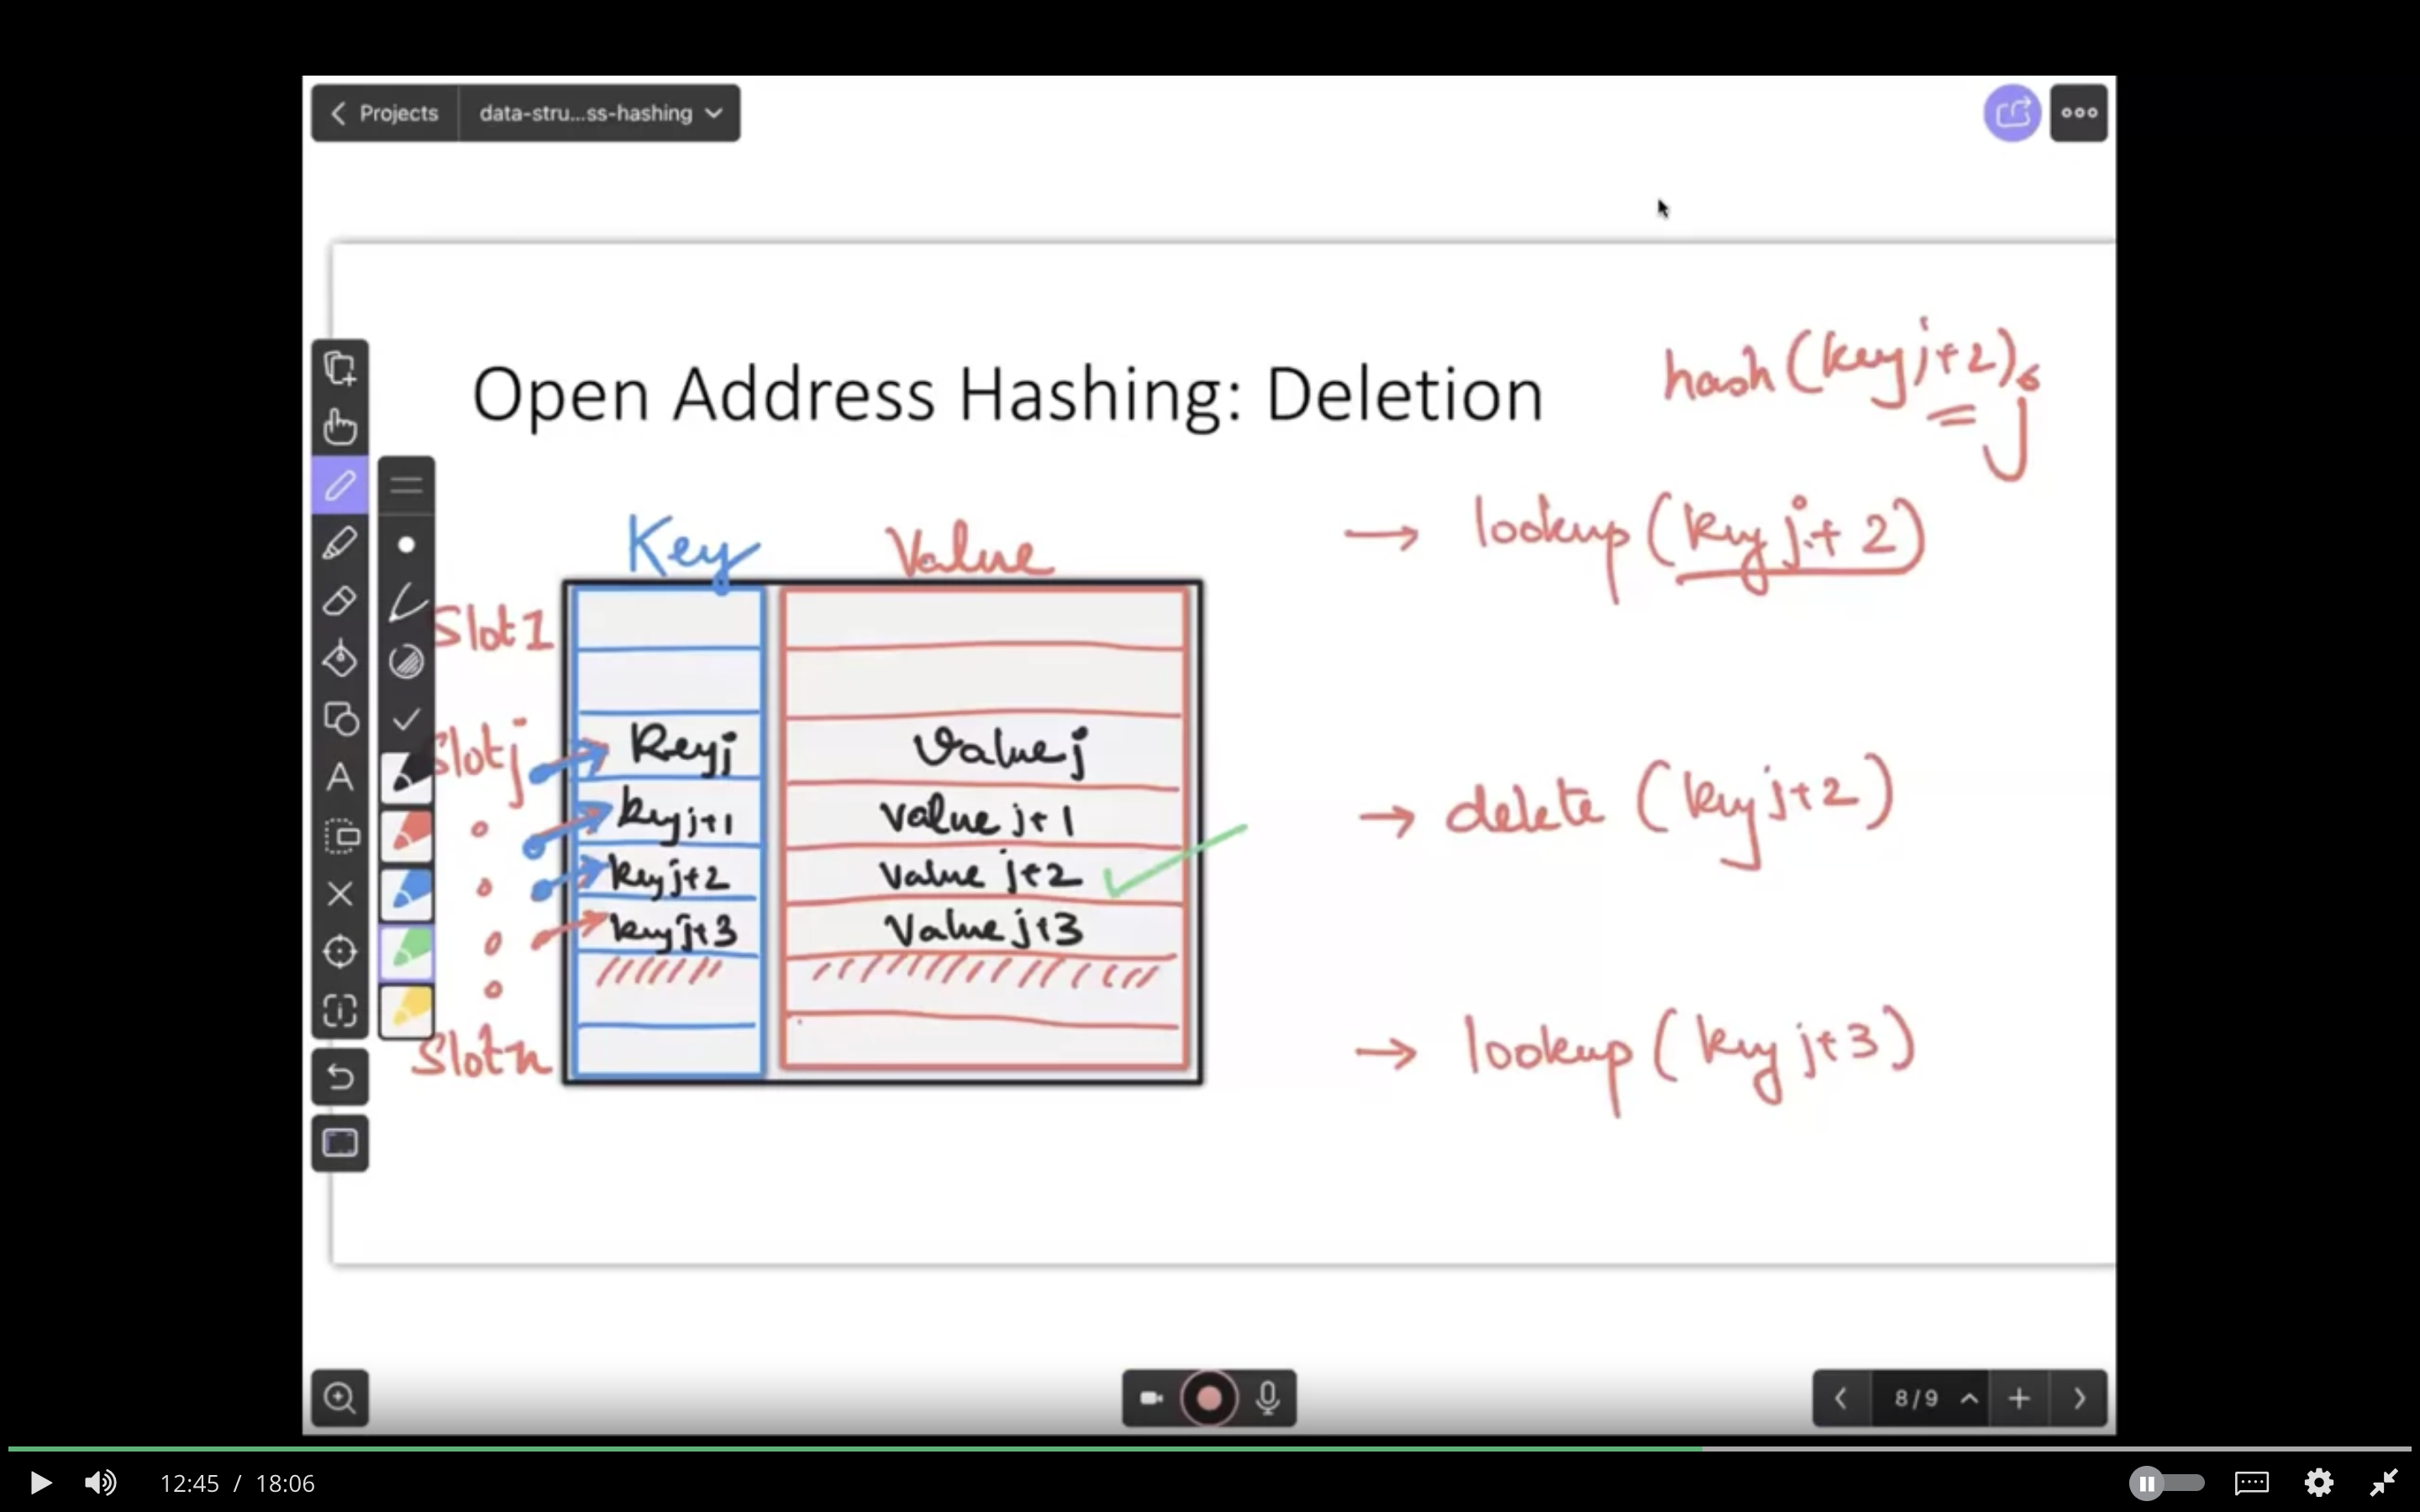 Projects data-stru...ss-hashing
Open Address Hashing: Deletion
hash(key j+2)
= j
lookup (key j+2)
Key Value
Slot 1
Slot j Key j Value j
key j+1 Value j+1
key j+2 Value j+2
key j+3 Value j+3
Slot n
→ delete (key j+2)
→ lookup (key j+3)
8/9
12:45 / 18:06